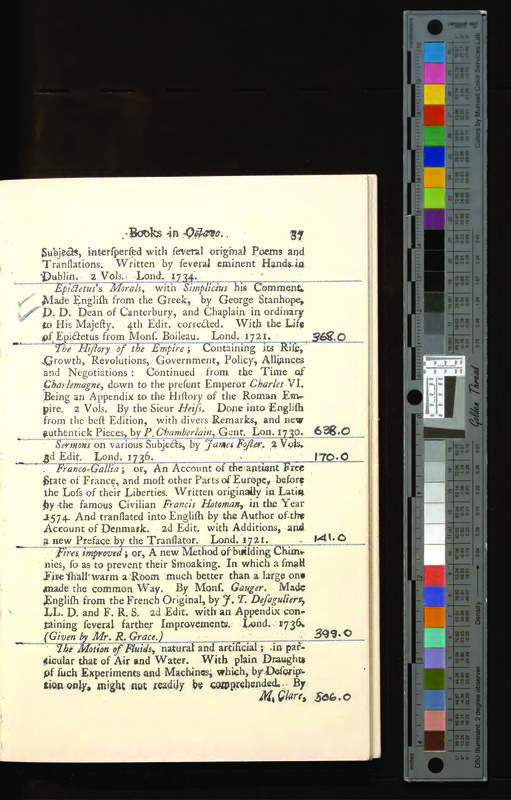 Books in Octavo. 37
Subjects, interſperſed with ſeveral original Poems and
Tranſlations. Written by ſeveral eminent Hands in
Dublin. 2 Vols. Lond. 1734.
Epictetus's Morals, with Simplicius his Comment.
Made Engliſh from the Greek, by George Stanhope,
D. D. Dean of Canterbury, and Chaplain in ordinary
to His Majeſty. 4th Edit. corrected. With the Life
of Epictetus from Monſ. Boileau. Lond. 1721. 368.0
The Hiſtory of the Empire; Containing its Riſe,
Growth, Revolutions, Government, Policy, Alliances
and Negotiations: Continued from the Time of
Charlemagne, down to the preſent Emperor Charles VI.
Being an Appendix to the Hiſtory of the Roman Em-
pire. 2 Vols. By the Sieur Heiſs. Done into Engliſh
from the beſt Edition, with divers Remarks, and new
authentick Pieces, by P. Chamberlain, Gent. Lon. 1730. 638.0
Sermons on various Subjects, by James Foſter. 2 Vols.
3d Edit. Lond. 1736. 170.0
Franco-Gallia; or, An Account of the antient Free
State of France, and moſt other Parts of Europe, before
the Loſs of their Liberties. Written originally in Latin
by the famous Civilian Francis Hotoman, in the Year
1574. And tranſlated into Engliſh by the Author of the
Account of Denmark. 2d Edit. with Additions, and
a new Preface by the Tranſlator. Lond. 1721. 141.0
Fires improved; or, A new Method of building Chim-
nies, ſo as to prevent their Smoaking. In which a ſmall
Fire ſhall warm a Room much better than a large one
made the common Way. By Monſ. Gauger. Made
Engliſh from the French Original, by J. T. Deſaguliers,
LL. D. and F. R. S. 2d Edit. with an Appendix con-
taining ſeveral farther Improvements. Lond. 1736.
(Given by Mr. R. Grace.) 399.0
The Motion of Fluids, natural and artificial; in par-
ticular that of Air and Water. With plain Draughts
of ſuch Experiments and Machines, which, by Deſcrip-
tion only, might not readily be comprehended. By
M. Clare, 806.0
Colors by Munsell Color Services Lab
Golden Thread
Density
D50 Illuminant, 2 degree observer